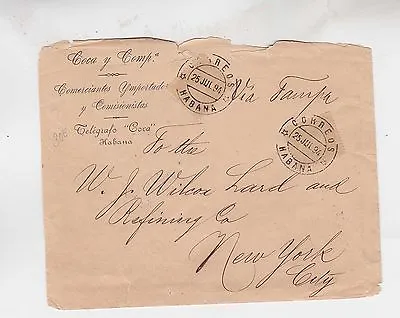 Coca y Comp.ª
Comerciantes Ymportado
y Comisionistas
Telégrafo "Coca"
Habana
CORREOS
25 JUL 94
HABANA
Via Tampa
CORREOS
25 JUL 94
HABANA
To the
W. J. Wilcox Lard and
Refining Co
New York
City